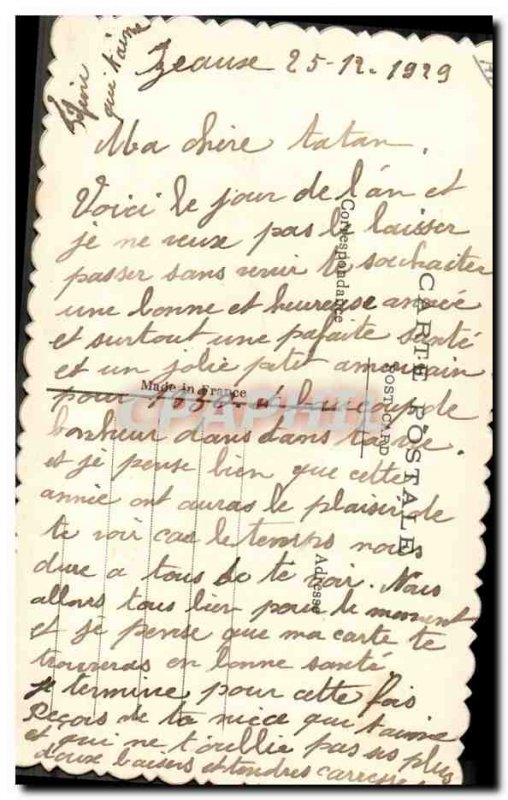 25-12-1929
Ma chère tatan.
Voici le jour de l'an et
je ne veux pas le laisser
passer sans venir te souhaiter
une bonne et heureuse année
et surtout une pafaite santé
et un jolie petit amouain
pour 1930. et baucoup de
bonheur dans dans ta vie.
et je pense bien que cette
année ont auras le plaisir de
te voir car le temps nous
dure a tous de te voir. Nous
allons tous bien pour le moment
et je pense que ma carte te
trouveras en bonne santé
je termine pour cette fois
Reçois de ta nièce qui t'aime
et qui ne t'oublie pas ses plus
doux baisers et tendres caresses
qui t'aime
Correspondance
CARTE POSTALE
POSTCARD
Made in France
Adresse
CPAPHIL